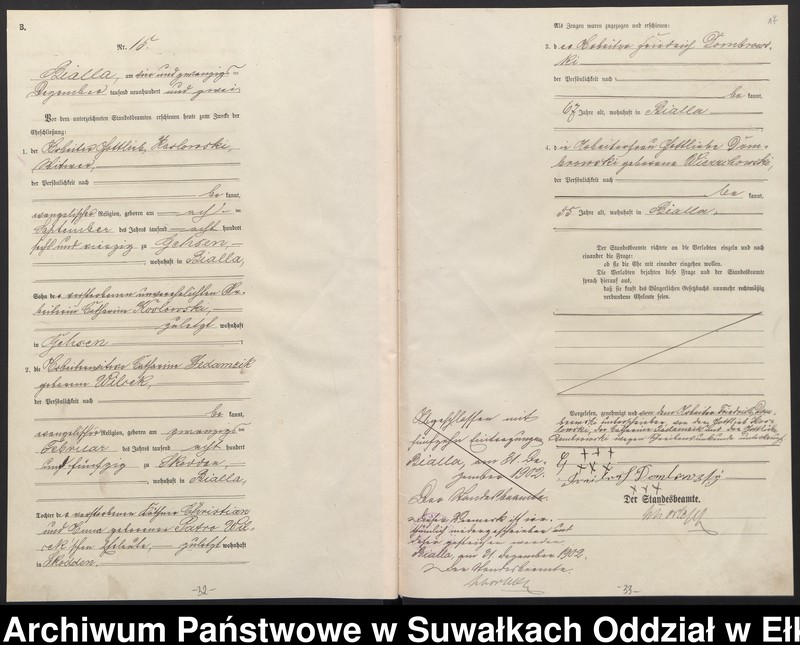 B.
Nr. 15.
Bialla, am vier und zwanzigs-
Dezember tausend neunhundert und zwei
Vor dem unterzeichneten Standesbeamten erschienen heute zum Zwecke der
Eheschließung:
1. der Arbeiter Gottlieb Koslowski,
Witwer,
der Persönlichkeit nach
be kannt,
evangelischer Religion, geboren am
September des Jahres tausend acht hundert
sechs und vierzig zu Gehsen,
, wohnhaft in Bialla,
Sohn der verstorbenen unverehelichten Ar-
beiterin Catharine Koslowski,
zuletzt wohnhaft
in Gehsen
2. die Arbeiterwitwe Catharine
geborene Wilbek,
der Persönlichkeit nach
be kannt,
evangelischer Religion, geboren am zwanzigs-
Februar des Jahres tausend acht hundert
und fünfzig zu Skodden,
, wohnhaft in Bialla,
Tochter der verstorbenen Christian
und Anna geborene
Eheleute, zuletzt wohnhaft
in Skodden.
-32-
17
Als Zeugen waren zugezogen und erschienen:
3. der Arbeiter Friedrich Dombrows-
ki
der Persönlichkeit nach
be kannt,
67 Jahre alt, wohnhaft in Bialla
4. die Arbeiterfrau Gottliebe Dom-
browski geborene
der Persönlichkeit nach
be kannt,
55 Jahre alt, wohnhaft in Bialla.
Der Standesbeamte richtete an die Verlobten einzeln und nach
einander die Frage:
ob sie die Ehe mit einander eingehen wollen.
Die Verlobten bejahten diese Frage und der Standesbeamte
sprach hierauf aus,
daß sie kraft des Bürgerlichen Gesetzbuchs nunmehr rechtmäßig
verbundene Eheleute seien.
Vorgelesen, genehmigt und von dem Arbeiter Friedrich Dom-
browski unterschrieben, von dem Gottlieb Kos-
lowski, der Catharine und der Gottliebe
Dombrowski wegen Schreibensunkunde
+++
+++
Friedrich
+++
Der Standesbeamte.
Abgeschlossen mit
fünfzehn Eintragungen
Bialla, am 31. De-
zember 1902.
Der Standesbeamte.
Dieser Vermerk ist irr-
thümlich niedergeschrieben und
daher gestrichen worden.
Bialla, am 31. Dezember 1902.
Der Standesbeamte.
-33-
Archiwum Państwowe w Suwałkach Oddział w Ełk